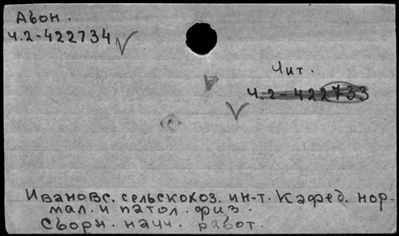 Абон.
Ч.2-422734
Чит.
Ч.2-422733
Ивановс. сельскохоз. ин-т. Кафед. нор-
мал. и патол. физ.
Сборн. научн. работ.